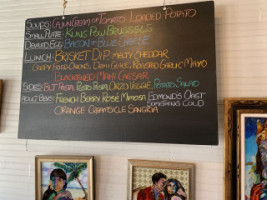 Soups: Cajun Cream of Tomato Loaded Potato
Small Plate: Kung Pow Brussels
Deviled Egg: Bacon + Blue Cheese
Lunch: Brisket Dip, Melty Cheddar
Crispy Fried Onions, Demi Glace, Roasted Garlic Mayo
Blackened Mahi Caesar
Sides: Pasta Potato Salad
Adult Bev: French Berry Rosé Mimosa Edmonds Oast
Something Cold
Orange Creamsicle Sangria